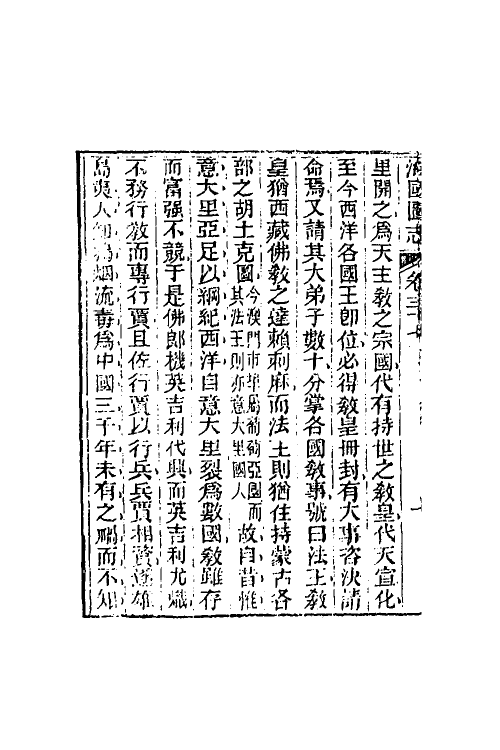 海國圖志 卷三十
里開之爲天主敎之宗國代有持世之敎皇代天宣化
至今西洋各國王卽位必得敎皇冊封有大事咨決請
命焉又請其大弟子數十分掌各國敎事號曰法王敎
皇猶西藏佛敎之達賴剌麻而法王則猶住持蒙古各
部之胡土克圖今澳門市埠屬葡萄亞國而其法王則亦意大里國人故自昔惟
意大里亞足以綱紀西洋自意大里裂爲數國敎雖存
而富强不競于是佛郎機英吉利代興而英吉利尤熾
不務行敎而專行賈且佐行賈以行兵兵賈相資遂雄
島夷人知鴉烟流毒爲中國三千年未有之禍而不知